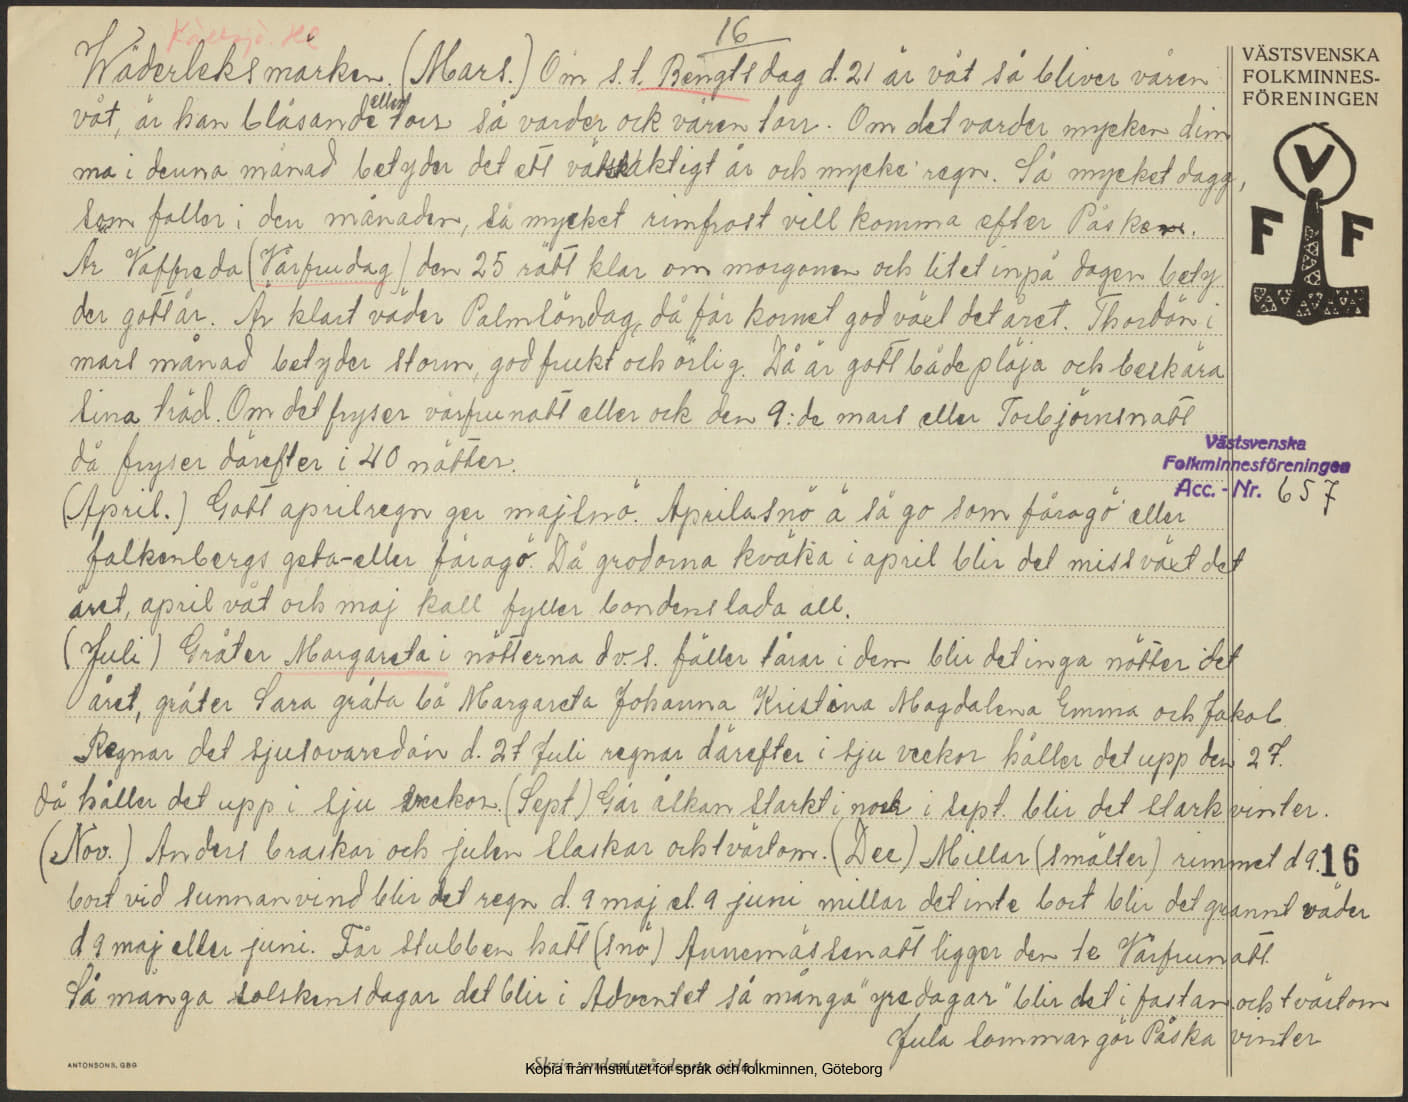 16
Källsjö. Hl
Wäderleksmärken. (Mars.) Om s.t. Bengtsdag d. 21 är våt så bliver våren
våt, är han blåsande eller torr så varder ock våren torr. Om det varder mycken dim
ma i denna månad betyder det ett våtaktigt år och mycke regn. Så mycket dagg,
som faller i den månaden, så mycket rimfrost vill komma efter Påsken.
Är Vaffreda (Vårfrudag) den 25 rätt klar om morgonen och litet inpå dagen bety
der gott år. Är klart väder Palmsöndag, då får kornet god växt det året. Thordön i
mars månad betyder storm, god frukt och örlig. Då är gott både plöja och beskära
sina träd. Om det fryser vårfrunatt eller ock den 9:de mars eller Torbjörnsnatt
då fryser därefter i 40 nätter.
(April.) Gott aprilregn ger majsnö. Aprilasnö ä så go som fåragö eller
falkenbergs geta-eller fåragö. Då grodorna kväka i april blir det missväxt det
året, april våt och maj kall fyller bondens lada all.
(Juli) Gråter Margareta i nötterna dv.s. fäller tårar i dem blir det inga nötter det
året, gråter Sara gråta bå Margareta Johanna Kristina Magdalena Emma och Jakob.
Regnar det sjusovaredan d. 27 Juli regnar därefter i sju veckor håller det upp den 27.
då håller det upp i sju veckor. (Sept) Går älkan starkt i norr i sept. blir det stark vinter.
(Nov.) Anders braskar och julen slaskar och tvärtom. (Dec) Millar (smälter) rimmet d 9.
bort vid sunnanvind blir det regn d. 9 maj el. 9 juni millar det inte bort blir det grannt väder
d 9 maj eller juni. Får stubben hatt (snö) Annemässenatt ligger den te Vårfrunatt.
Så många solskensdagar det blir i Adventet så många "yredagar" blir det i fastan och tvärtom
Jula sommar gör Påska vinter
VÄSTSVENSKA
FOLKMINNES-
FÖRENINGEN
V
F F
Västsvenska
Folkminnesföreningen
Acc.-Nr. 657
16
ANTONSONS, GBG
Skriv endast på denna sida!
Kopia från Institutet för språk och folkminnen, Göteborg